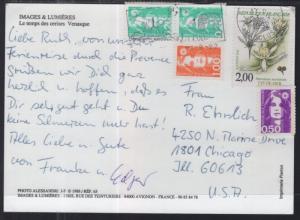 IMAGES & LUMIÈRES
Le temps des cerises Venasque
Liebe Ruth, von unserer
Ferienreise durch die Provence
grüßen wir Dich ganz
herzlich u. hoffen, daß es
Dir sehr gut geht u. Du
keine Schmerzen mehr hast!
Alles Liebe u. Gute
von Franka u. Edgar
Frau
R. Ehrlich
4250 N. Marine Drive
1801 Chicago
Ill. 60613
USA
2,00
1,00
0,50
PHOTO ALESSANDRI J-F © 1988 / REF. 63
IMAGES & LUMIÈRES
84000 AVIGNON - FRANCE